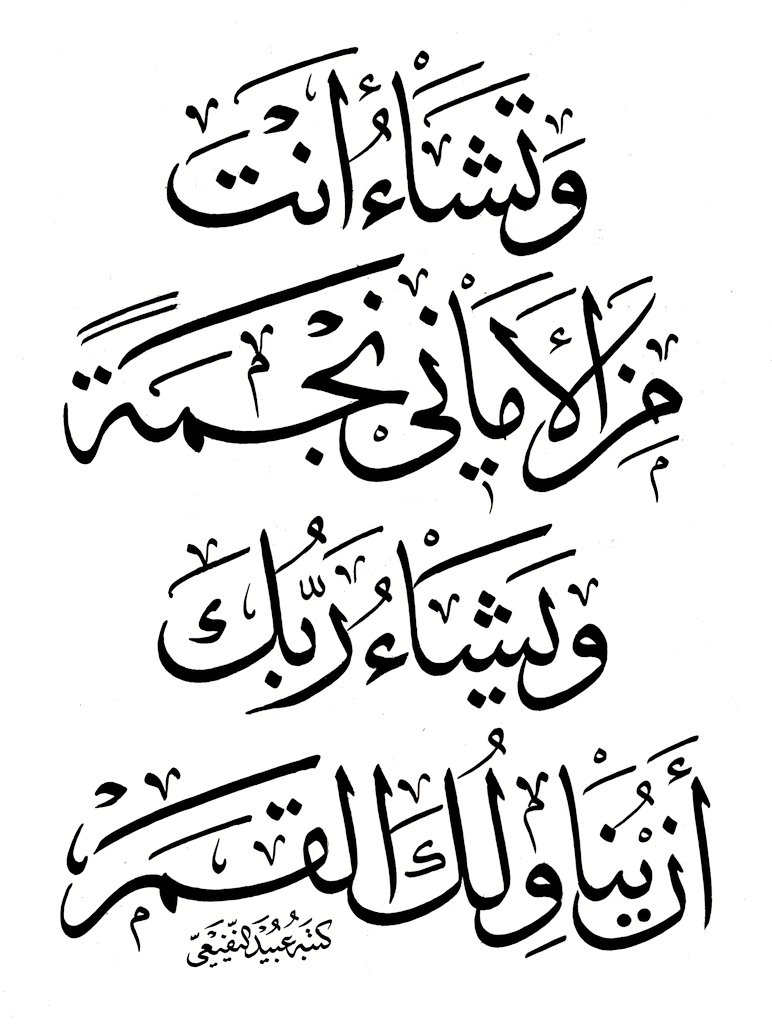 وَتَشَاءُ أَنْتَ
مِنَ الْأَمَانِي نَجْمَةً
وَيَشَاءُ رَبُّكَ
أَنْ يُنَاوِلُكَ الْقَمَرْ
كتبه عبيد النفيعي